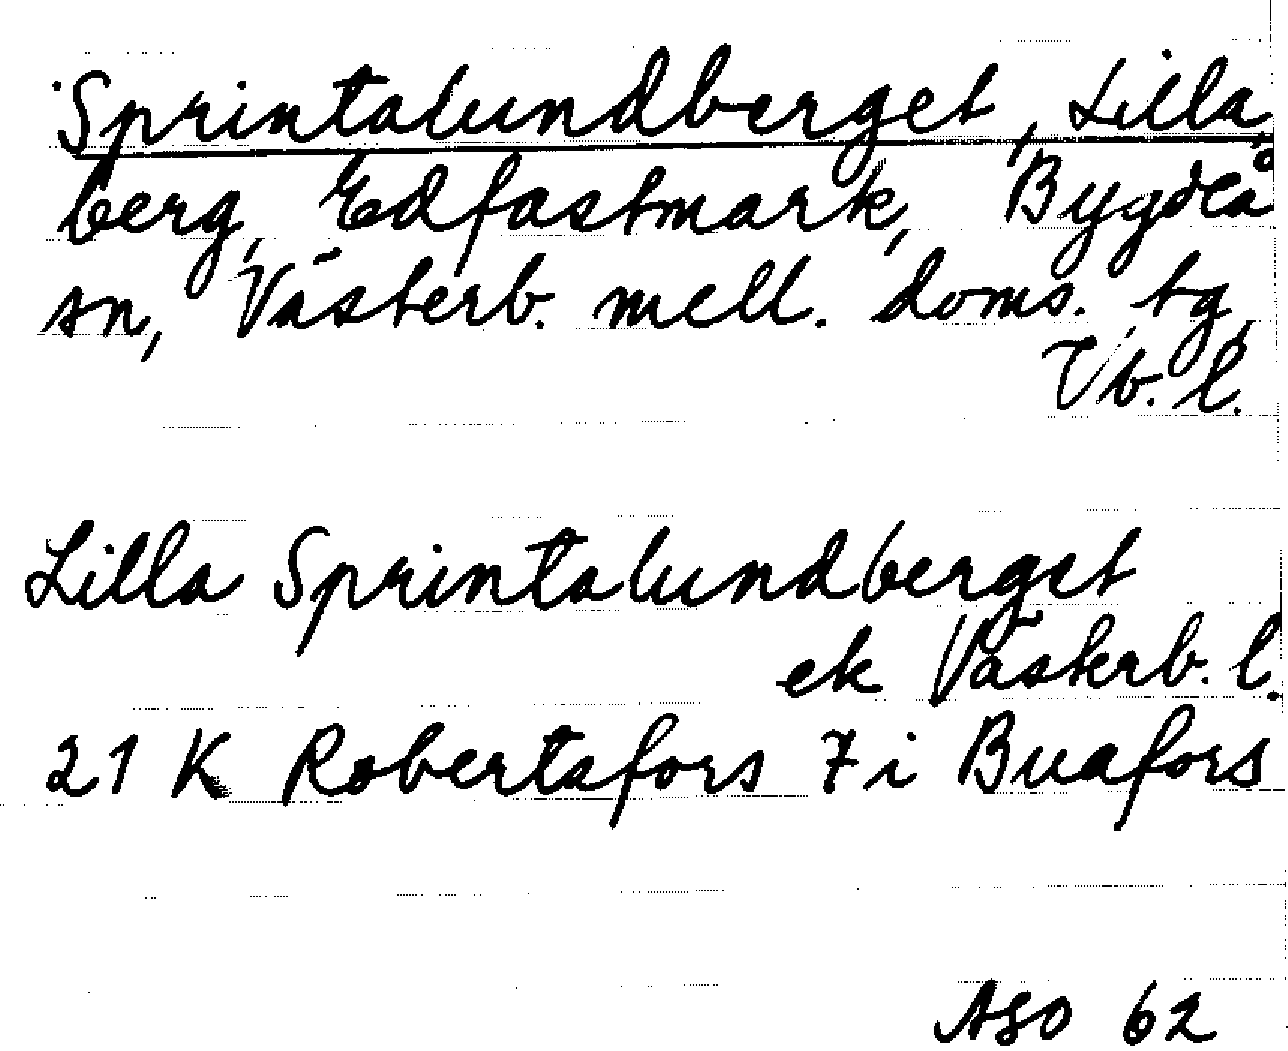 Sprintalundberget, Lilla,
berg, Edfastmark, Bygdeå
sn, Västerb. mell. doms. tg,
Vb. l.
Lilla Sprintalundberget
ek Västerb. l.
21 K Robertsfors 7 i Buafors
ASO 62